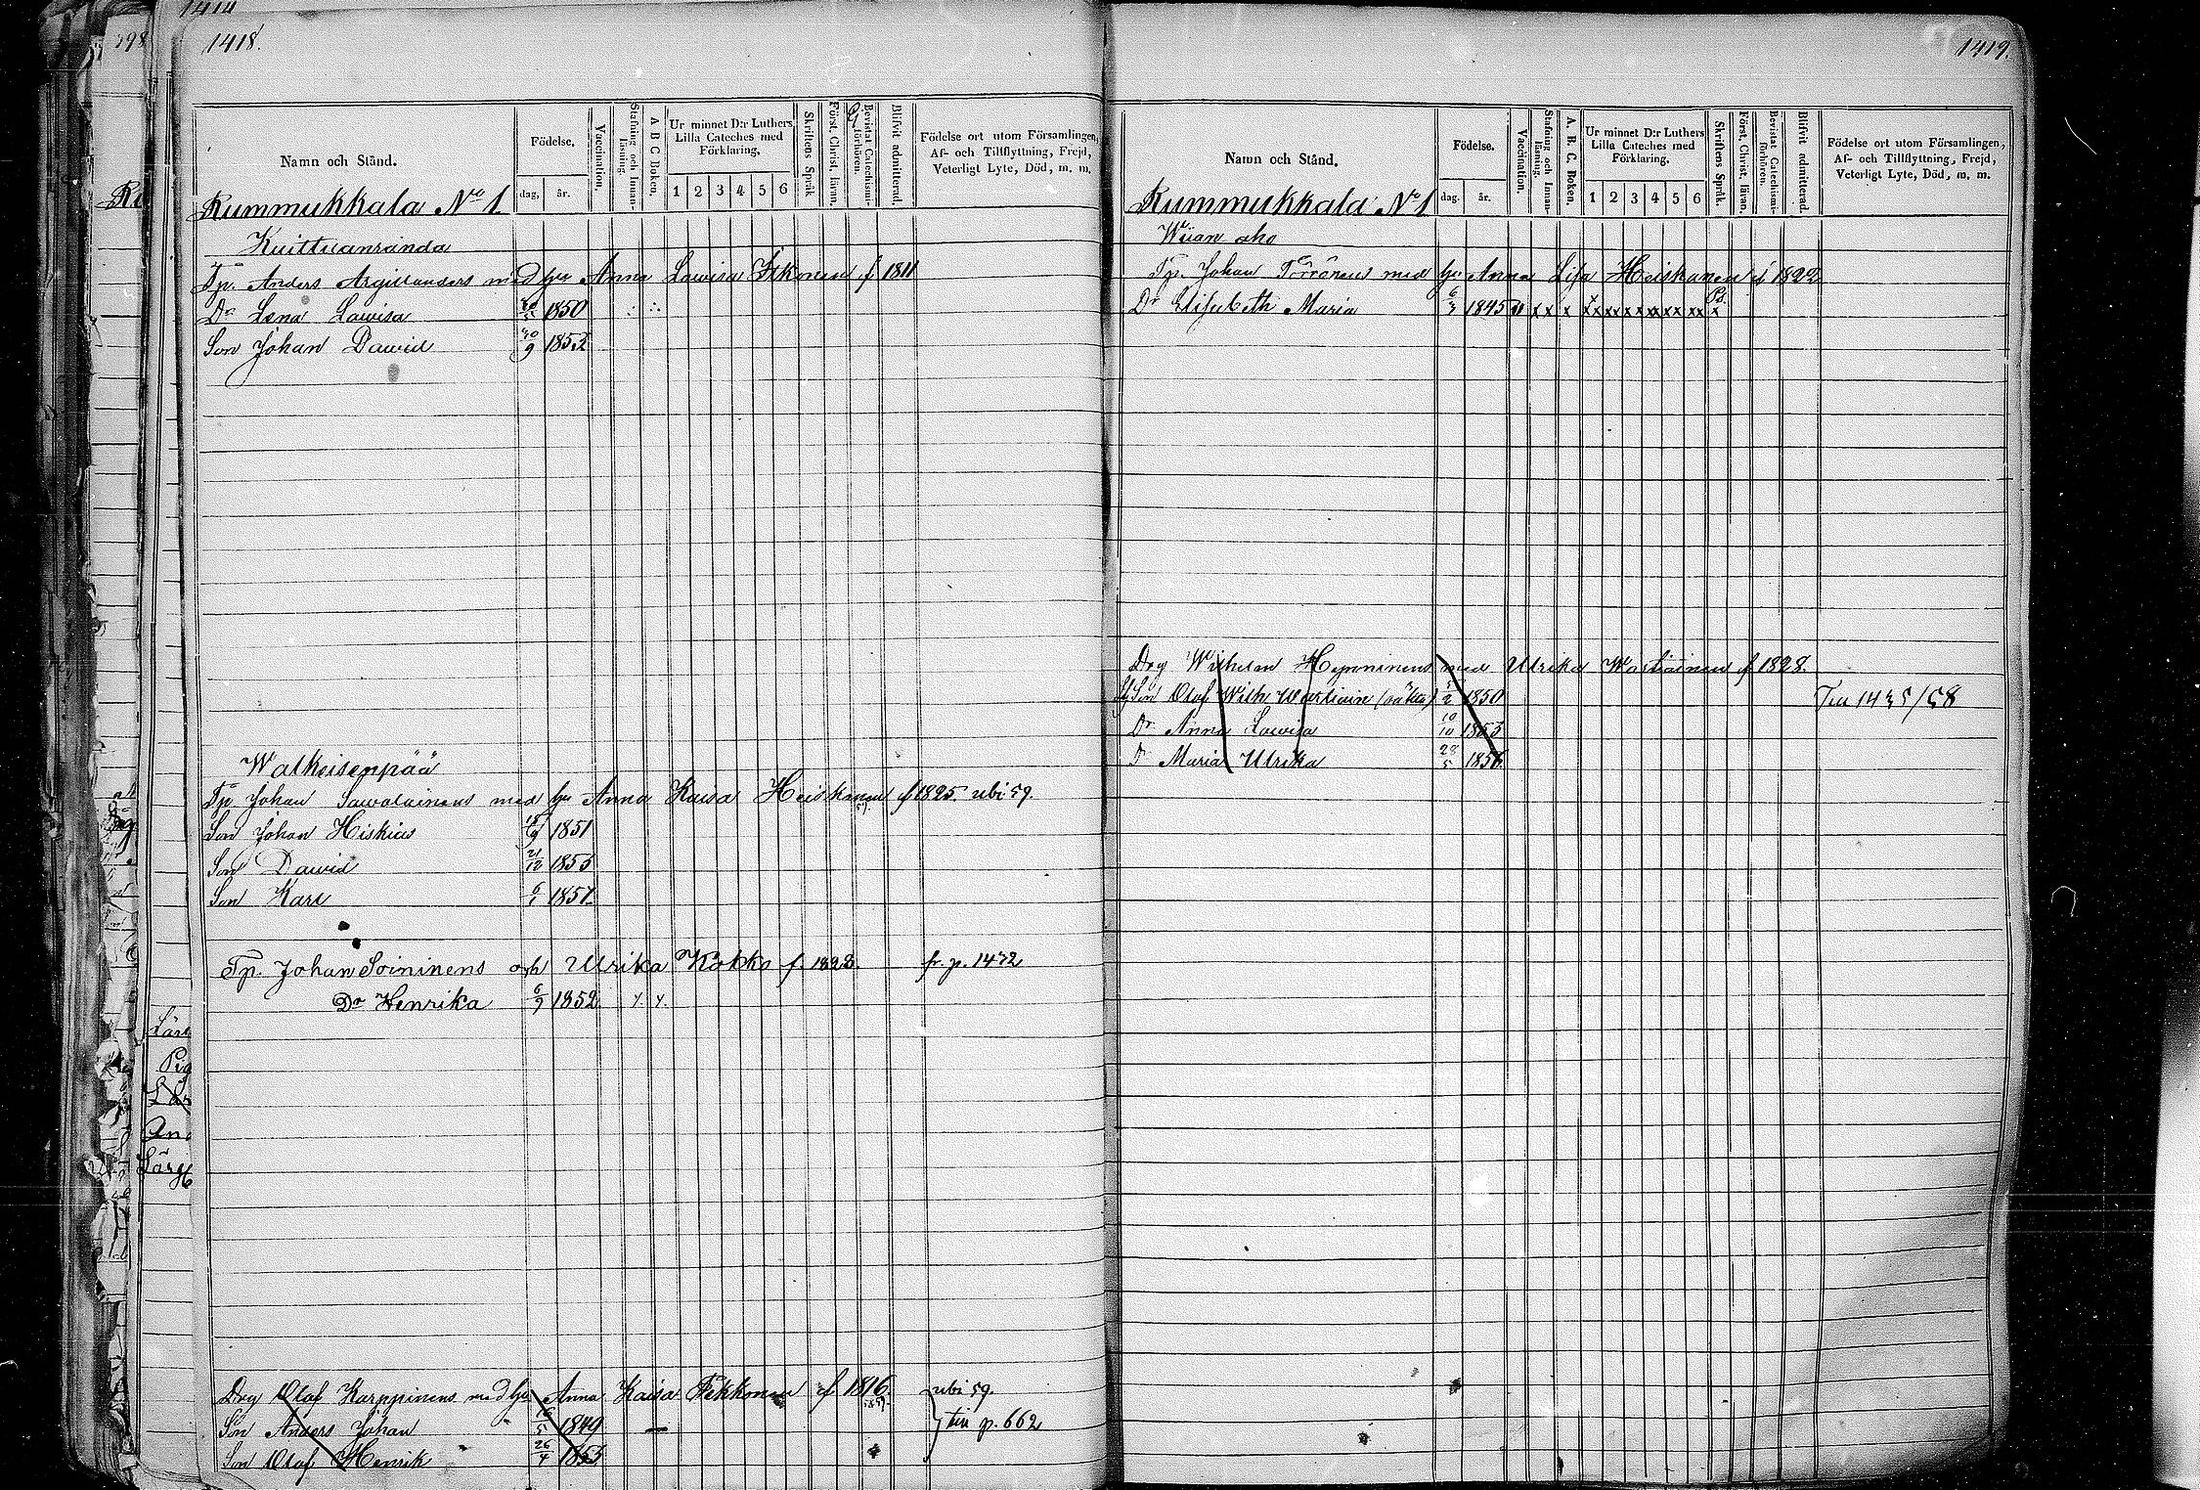 1414
398
1418.
Namn och Stånd.
Födelse.
dag. år.
Vaccination.
Stafning och Innan-läsning.
A B C Boken.
Ur minnet D:r Luthers Lilla Cateches med Förklaring.
1 2 3 4 5 6
Skriftens Språk
Först. Christ. läran.
Bevistat Catechismi-förhören.
Blifvit admitterad.
Födelse ort utom Församlingen, Af- och Tillflyttning, Frejd, Veterligt Lyte, Död, m. m.
Rummukkala No 1
Kuittuanranda
Tp. Anders Argillanders med hu Anna Lawisa Itkonen f 1811
Dr Lena Lawisa 1850
Son Johan Dawid 30/9 1853
Walkeisenpää
Tp. Johan Sawolainens med hu Anna Kaisa Heiskanen f 1825. ubi 59.
Son Johan Hiskias 1851
Son Dawid 21/12 1853
Son Karl 6/1 1857
Tp. Johan Soininens och Ulrika Kokko f. 1828. fr. p. 1472
Dr Henrika 6/9 1852. x. x.
Drg Olaf Karppinens med hu Anna Kaisa Pekkonen f 1816 ubi 59.
Son Anders Johan 1849 — till p. 662
Son Olaf Henrik 26/4 1853
1419.
Namn och Stånd.
Födelse.
dag. år.
Vaccination.
Stafning och Innan-läsning.
A. B. C. Boken.
Ur minnet D:r Luthers Lilla Cateches med Förklaring.
1 2 3 4 5 6
Skriftens Språk.
Först. Christ. läran.
Bevistat Catechismi-förhören.
Blifvit admitterad.
Födelse ort utom Församlingen, Af- och Tillflyttning, Frejd, Veterligt Lyte, Död, m. m.
Rummukkala No 1
Wiian aho
Tp. Johan Törrönens med hu Anna Lisa Heiskanen f 1822
Dr Elisabeth Maria 6/3 1845 v xx x xx xx xx xx xx xx x
Drg Wilhelm Heponinens med Ulrika Wartiainen f 1828.
Son Olaf Wilh Wartiain 5/2 1850 Till 1435/58
Dr Anna Lowisa 10/10 1853
Dr Maria Ulrika 28/5 1856